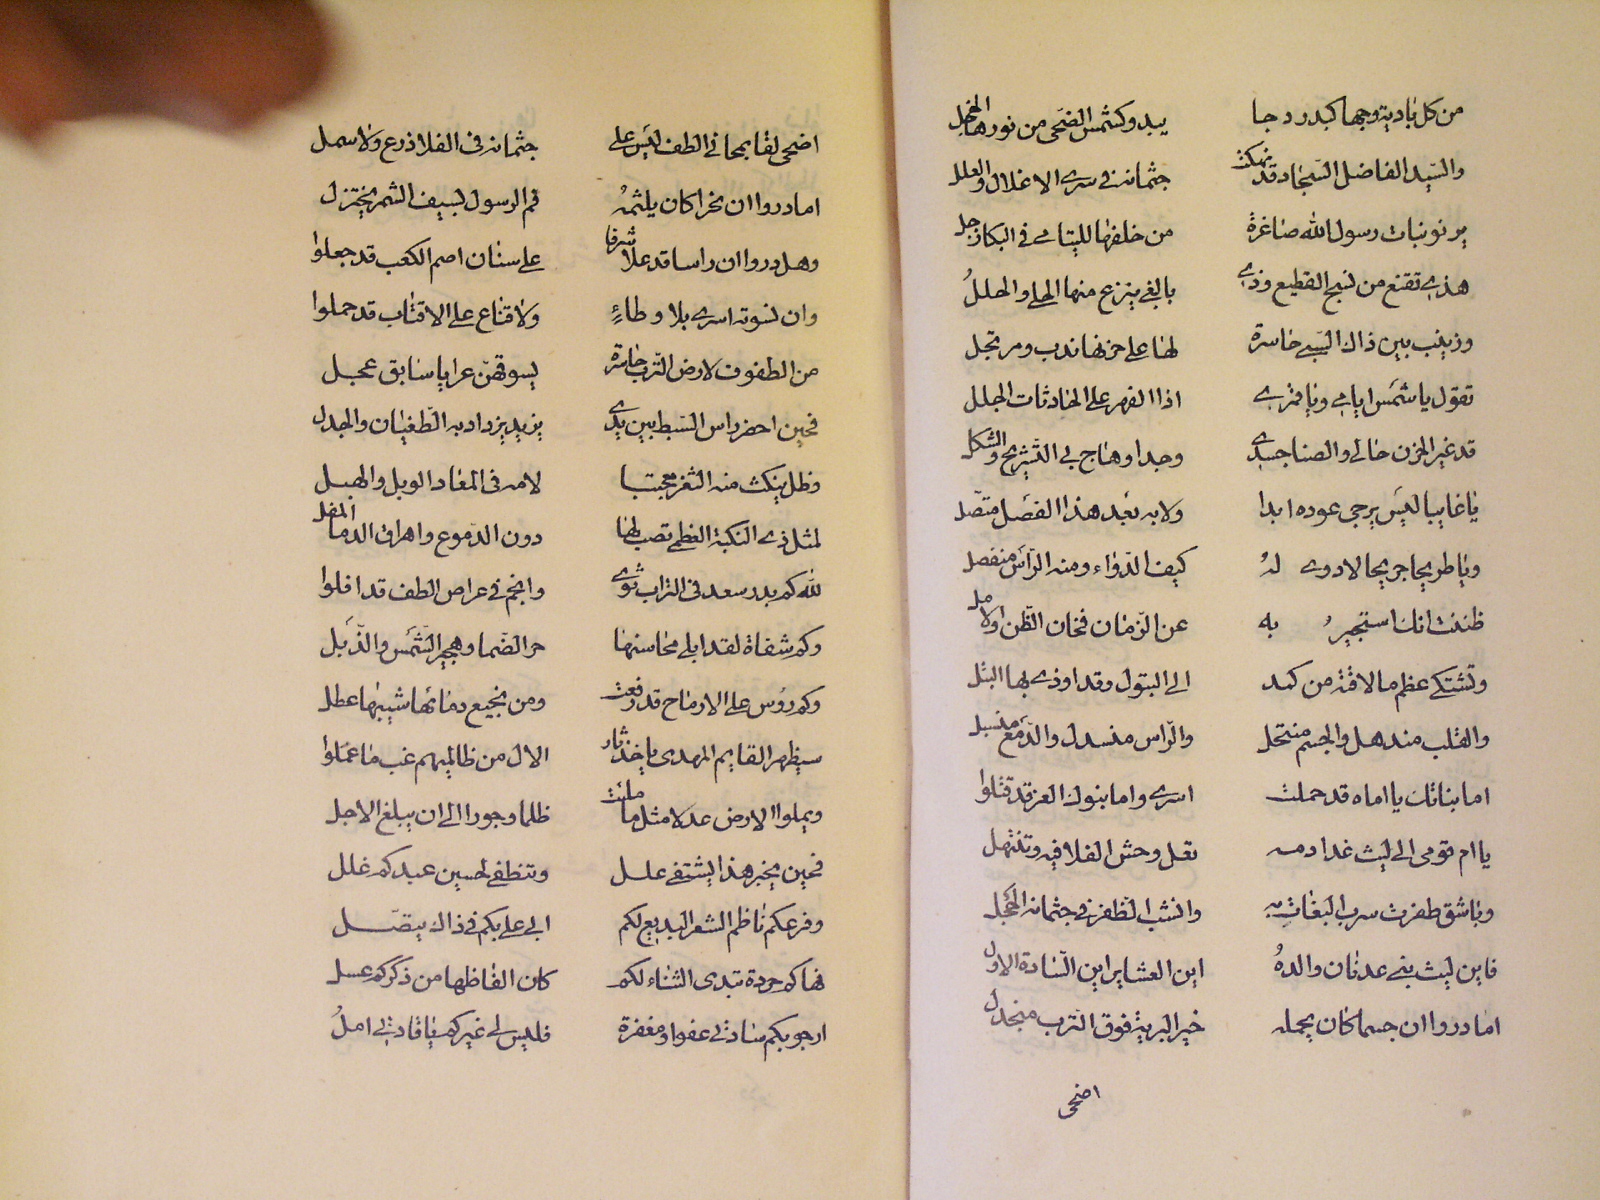 من كل بادية وجها كبدر دجا يبدو كشمس الضحى من نورها الخجل
والسيد الفاضل السجاد قد نهكت جثمانه في سرى الاغلال والعلل
يرنو بنات رسول الله صاغرة من خلفها لليتامى في البكا زجل
هذي تقنع من نسج القطيع وذي بالبغي ينزع منها الحلي والحلل
وزينب بين ذاك السبي حاسرة لها على حزنها ندب ومرتجل
تقول يا شمس ايامي ويا قمري اذا القهر على الحادثات الجلل
قد غير الحزن حالي والضنا جسدي وجدا وهاج بي التبريح والثكل
يا غايبا ليس يرجى عوده ابدا ولا به بعد هذا الفصل متصل
ويا طريحا جريحا لا دوى له كيف الدواء ومنه الراس منفصل
ظننت انك استجير به عن الزمان فخان الظن والامل
وتشتكي عظم ما لاقته من كمد الى البتول وقد اوذي بها الثكل
والقلب منذهل والجسم منتحل والراس منسدل والدمع منسبل
اما بناتك يا اماه قد حملت اسرى واما بنوك الغر قد قتلوا
يا ام قومي الى ليث غدا دمه تعل وحش الفلا فيه وتنتهل
وباشق طفرت سرب البغاث به وانشب الظفر في جثمانه الحجل
فاين ليث بني عدنان والده اين العشاير اين السادة الاول
اما دروا ان جسما كان يحمله خير البرية فوق الترب منجدل
اضحى
اضحى لقا بمحاني الطف ليس على جثمانه في الفلا ذرع ولا سمل
اما دروا ان نحرا كان يلثمه فم الرسول لسيف الشمر يختزل
وهل دروا ان راسا قد علا شرفا على سنان اصم الكعب قد جعلوا
وان نسوته اسرى بلا وطاء ولا قناع على الاقتاب قد حملوا
من الطفوف لارض الترب حاسرة يسوقهن عرايا سابق عجل
فحين احضر راس السبط بين يدي يزيد يزداد به الطغيان والجدل
وظل ينكث منه الثغر مجتبا لامه في المعاد الويل والهبل
لمثل ذي النكبة العظمى تصب لها دون الدموع واهراق الدما المقل
لله كم بدر سعد في التراب ثوى وانجم في عراص الطف قد افلوا
وكم شفاة لقد ابلى محاسنها حر الضما وهجير الشمس والذبل
وكم رؤس على الارماح قد رفعت ومن نجيع دمائها شيبها عطل
سيظهر القايم المهدي ياخذ ثار الال من ظالميهم غب ما عملوا
ويملوا الارض عدلا مثل ما ملئت ظلما وجورا الى ان يبلغ الاجل
فحين يخبر هذا يشتفى علل وتنطفي لحسين عبدكم غلل
وفرعكم ناظم الشعر البديع لكم ابي علي بكم في ذاك يتصل
فهاكم حردة تبدى الثناء لكم كان الفاظها من ذكركم عسل
ارجو بكم سادتي عفوا ومغفرة فليس لي غيركم يا قادتي امل